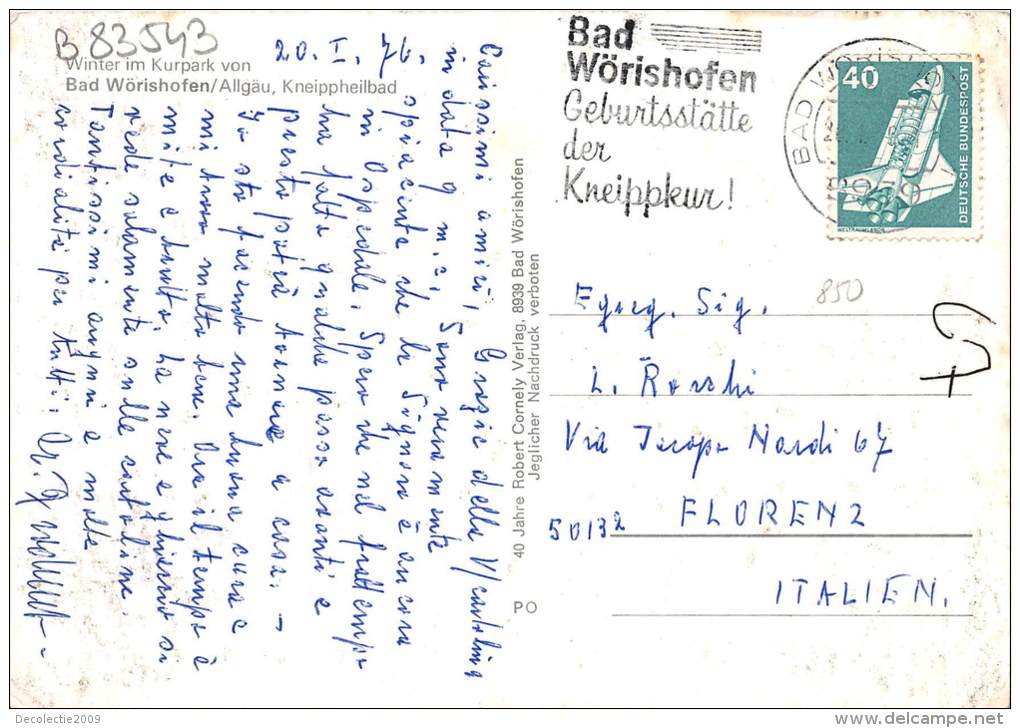 B 83543
Winter im Kurpark von
Bad Wörishofen/Allgäu, Kneippheilbad
20. I. 76.
Carissimi amici, Grazie della V/cartolina
in data 9 m.c, Sono veramente
spiacente che la Signora è ancora
in Ospedale. Spero che nel frattempo
ha fatto qualche passo avanti e
presto potrà tornare a casa. →
Io sto facendo una buona cura e
mi trovo molto bene. Ora il tempo è
mite e brutto. La neve e ghiaccio si
vede solamente sulle cartoline.
Tantissimi auguri e molte
cordialità per tutti.
40 Jahre Robert Cornely Verlag, 8939 Bad Wörishofen
Jeglicher Nachdruck verboten
PO
Bad
Wörishofen
Geburtsstätte
der
Kneippkur!
BAD WÖRISHOFEN
40
DEUTSCHE BUNDESPOST
WELTRAUMLABOR
850
Egreg. Sig.
L. Ronchi
Via Jacopo Nardi 67
50132 FLORENZ
ITALIEN.
Decolectie2009
delcampe.net